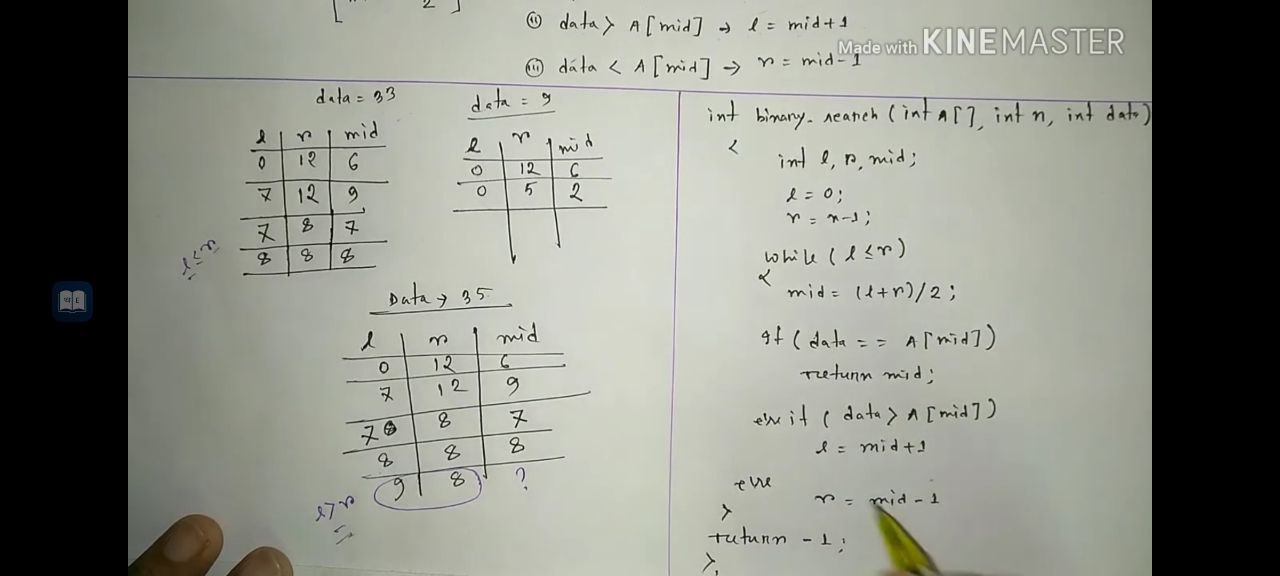 (ii) data > A[mid] → l = mid+1
Made with KINEMASTER
(iii) data < A[mid] → r = mid-1
data = 33
l r mid
0 12 6
7 12 9
7 8 7
8 8 8
l ≤ r
data = 9
l r mid
0 12 6
0 5 2
Data → 35
l r mid
0 12 6
7 12 9
7 8 7
8 8 8
9 8 ?
l > r
int binary_search (int A[], int n, int data)
{
int l, r, mid;
l = 0;
r = n-1;
while ( l ≤ r)
{
mid = (l+r)/2;
if ( data == A[mid])
return mid;
else if ( data > A[mid])
l = mid+1
else
r = mid-1
}
return -1;
},